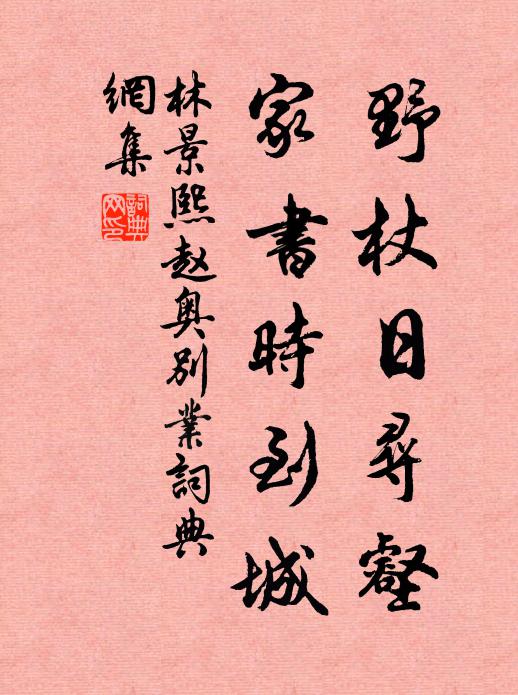 野杖日尋壑
家書時到城
林景熙赵奥别業詞典
網集
詞典網印